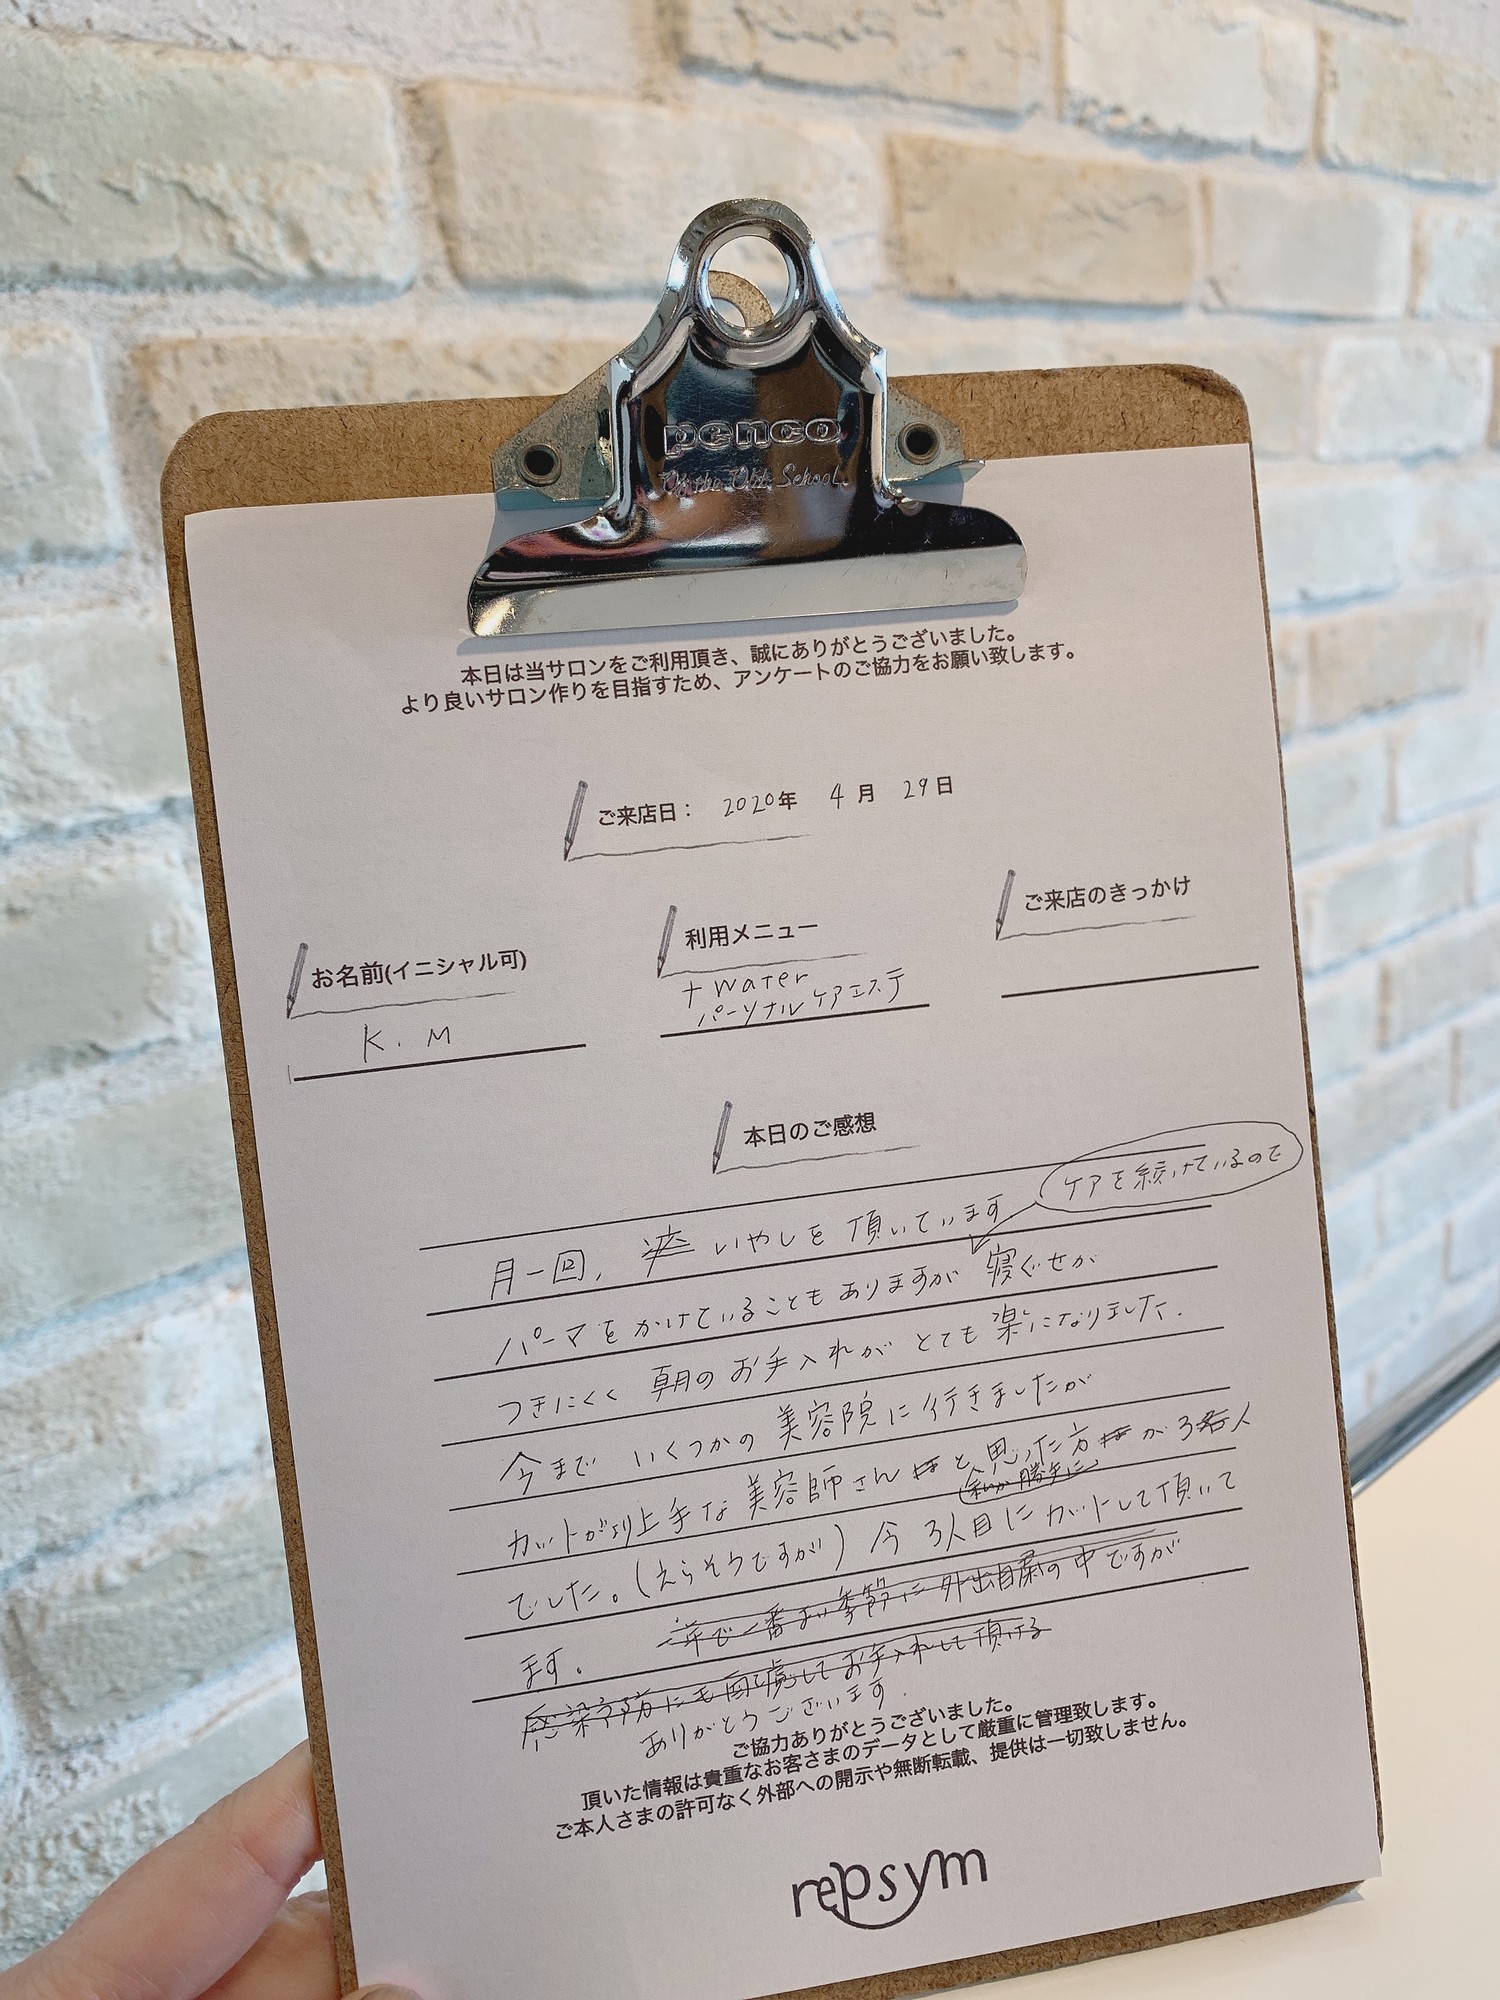 penco
Of the Old School
本日は当サロンをご利用頂き、誠にありがとうございました。
より良いサロン作りを目指すため、アンケートのご協力をお願い致します。
ご来店日: 2020年 4月 29日
お名前(イニシャル可)
K. M
利用メニュー
+ Water
パーソナルケアエステ
ご来店のきっかけ
本日のご感想
ケアを続けているので
月一回, いやしを 頂いています
パーマをかけていることもありますが 寝ぐせが
つきにくく 朝のお手入れが とても 楽になりました.
今まで いくつかの 美容院に 行きましたが
カットがより上手な 美容師さん と思った方 が 3人
(私が勝手に)
でした。(えらそうですが) 今 3人目にカットして頂いて
ます。 一年で一番よい季節に 外出自粛の中ですが
感染予防にも配慮してお手入れして頂ける
ありがとうございます.
ご協力ありがとうございました。
頂いた情報は貴重なお客さまのデータとして厳重に管理致します。
ご本人さまの許可なく外部への開示や無断転載、提供は一切致しません。
repsym